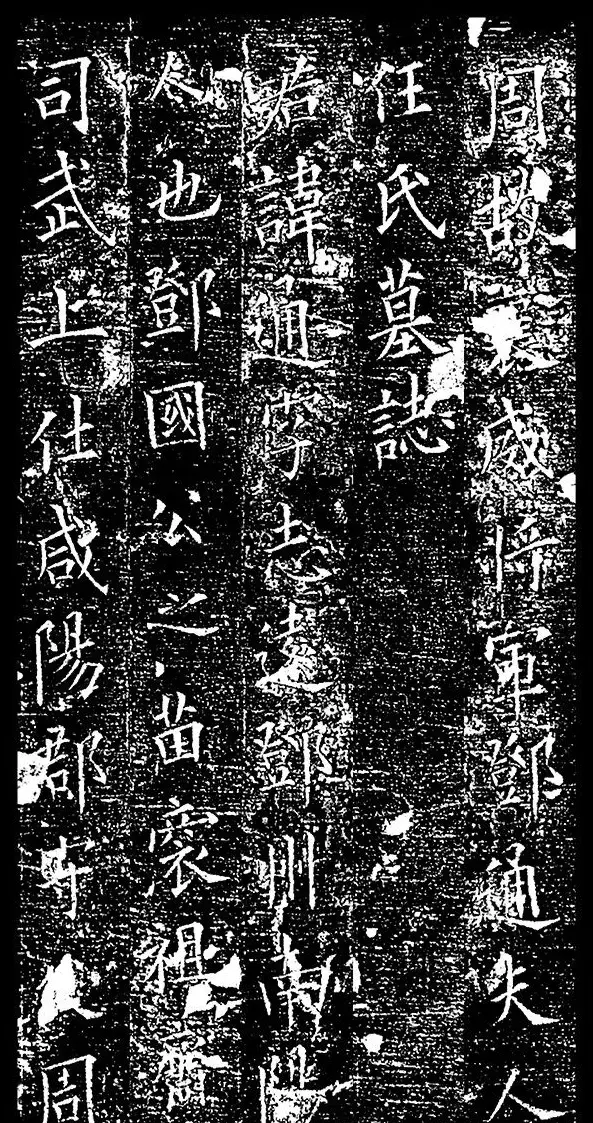 周故襄威将军鄧通夫人
任氏墓誌
君諱通字志遠鄧州南陽
人也鄧國公之苗裔祖齊
司武上仕咸陽郡守後周